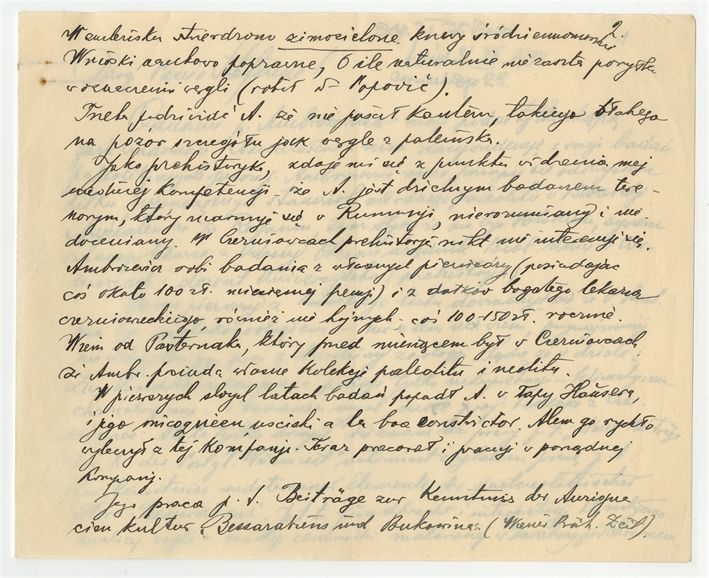 2
W znalezisku stwierdzono zimocielone krzewy śródziemnomorskie
Wnioski naukowe poprawne, O ile naturalnie nie zaszła pomyłka
w oznaczeniu węgli (robił Dr Popović).
Trzeba podziwiać A. że nie puścił kantem, takiego błahego
na pozór szczegółu jak węgle z paleniska.
Jako prehistoryk, zdaje mi się z punktu widzenia mej
kompetencji że A. jest dzielnym badaczem tere-
nowym, który marnuje się w Rumunji, nierozumiany i nie
doceniany. W Czerniowcach prehistorją nikt nie interesuje się.
Ambrożewicz robi badania z własnych pieniędzy (posiadając
coś około 100 zł. miesięcznej pensji) i z datków bogatego lekarza
czerniowieckiego, również nie hojnych – coś 100-150 zł. rocznie.
Wiem od Pasternaka, który przed miesiącem był w Czerniowcach,
że Ambr. posiada własne kolekcje paleolitu i neolitu.
W pierwszych swych latach badań popadł A. w łapy Hausera,
i jego micoqueen uściski à la boa constrictor. Alem go rychło
wyleczył z tej kompanji. Teraz pracował i pracuje w porządnej
kompanji.
Jego praca p. t. Beiträge zur Kenntnis der Aurigna
cien kultur Bessarabiens und Bukowinas (Wiener Präh. Zeit).